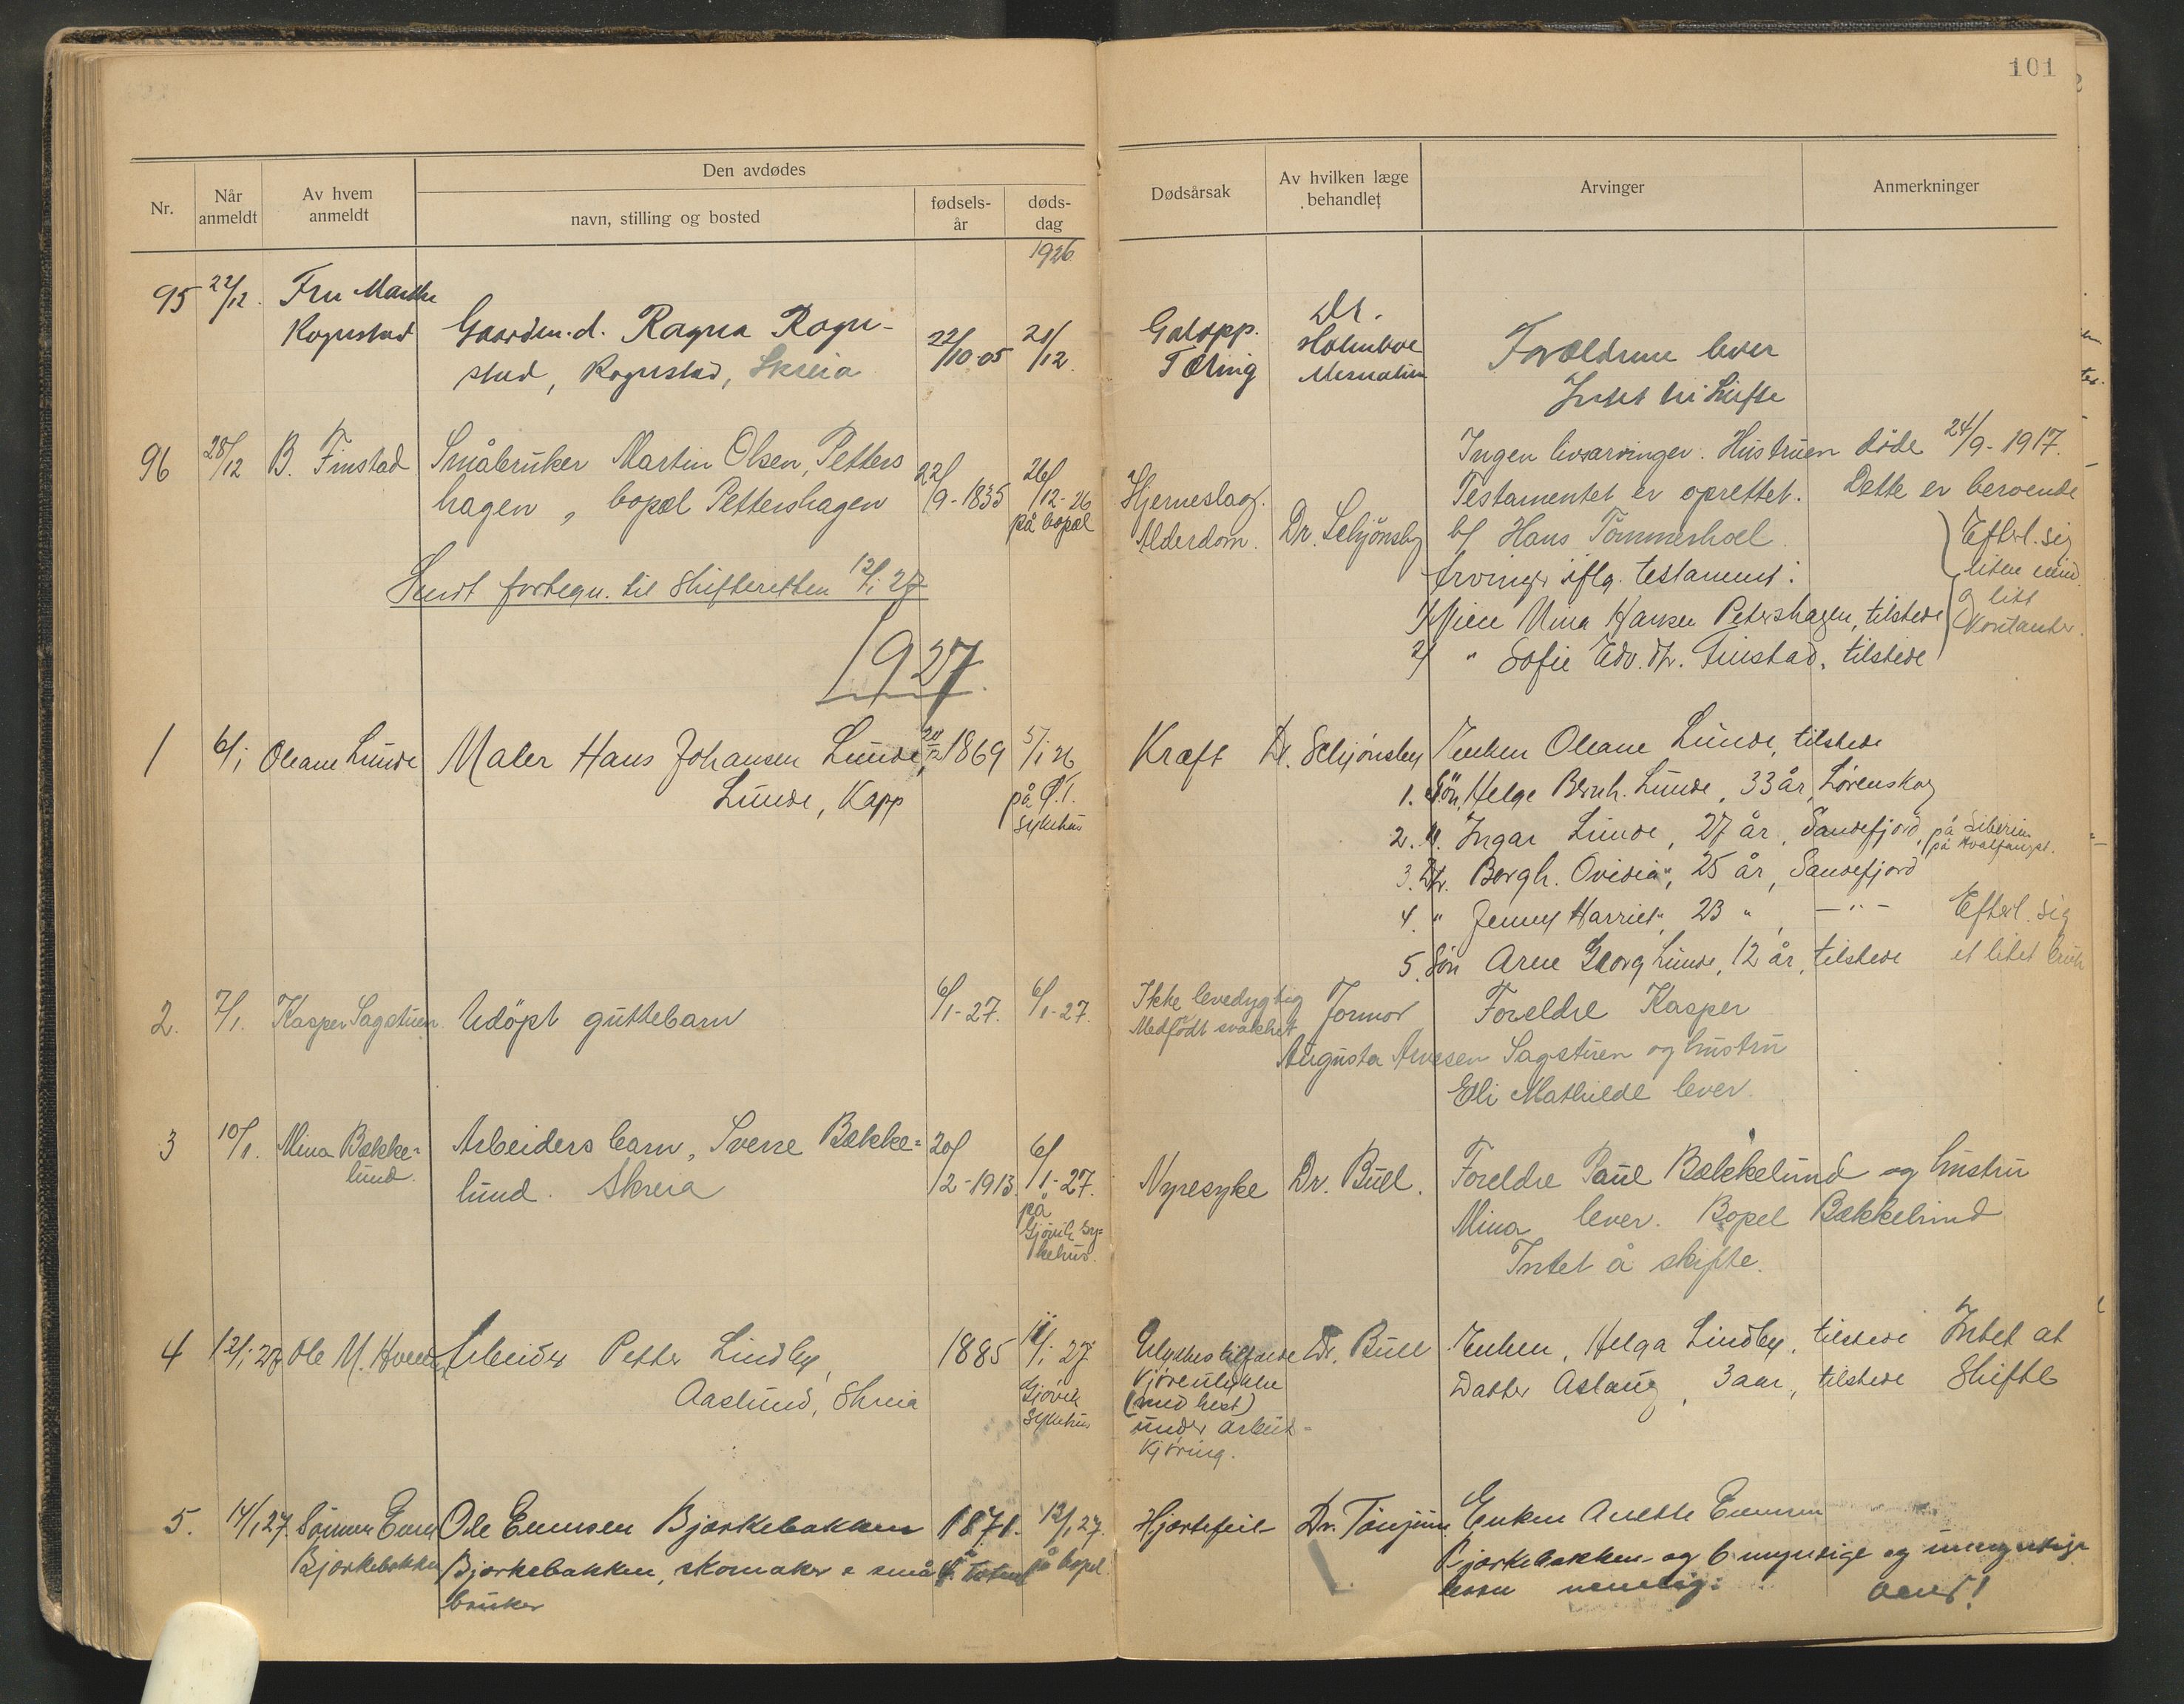 101
Nr.
Når anmeldt
Av hvem anmeldt
Den avdødes
navn, stilling og bosted
fødsels-år
døds-dag
Dødsårsak
Av hvilken læge behandlet
Arvinger
Anmerkninger
1926
95 22/12. Fru Marthe Rognstad
Gaardm.d. Ragna Rogn-
stad, Rognstad, Skreia
22/10-05 21/12.
Galopp. Tæring
Dr. Holmboe Mesnalien
Forældrene lever
Intet til Skifte
96 28/12 B. Finstad
Småbruker Martin Olsen, Petters
hagen, bopæl Pettershagen
22/9-1835 26/12-26 på bopæl
Hjerneslag.
Alderdom. Dr. Schjønsby
Ingen livsarvinger. Hustruen døde 24/9-1917.
Testamentet er oprettet. Dette er beroende
b/ Hans Tømmerhoel
Arvinger iflg. testament:
1/ Niece Mina Hansen Petershagen, tilstede
2/ " Sofie Edv. dtr. Finstad, tilstede
Efterl. sig
liten eiend.
og litt
Kontanter.
Sendt fortegn. til Skifteretten 12/1 27
1927.
1 6/1 Oleane Lunde
Maler Hans Johansen Lunde,
Lunde, Kapp
1869 5/1 26
på Ø.T.
sykehus
Kræft Dr. Schjønsby
Enken Oleane Lunde, tilstede
1. Søn, Helge Bernh. Lunde, 33 år, Lørenskog
2. " Ingar Lunde, 27 år, Sandefjord, på Siberien
på Hvalfangst.
3. Dtr. Borgh. Ovidia ", 25 år, Sandefjord
4. " Jenny Harriet ", 23 " — " —
5. Søn Arne Georg Lunde, 12 år, tilstede
Efterl. sig
et litet bruk
2. 7/1. Kasper Sagstuen
Udöpt guttebarn
6/1-27. 6/1-27.
Ikke levedygtig
Medfødt svakhet
Jormor
Augusta Arnesen
Foreldre Kasper
Sagstuen og hustru
Eli Mathilde lever.
3 10/1. Mina Bække=
lund.
Arbeiders barn, Sverre Bække=
lund. Skreia
20/2-1913. 6/1-27.
på
Gjøvik sy=
kehus.
Nyresyke Dr. Bull.
Foreldre Paul Bækkelund og hustru
Mina lever. Bopel Bækkelund
Intet å skifte.
4 12/1-27 Ole M. Hveem
Arbeider Petter Lindby,
Aaslund, Skreia
1885 11/1 27
Gjøvik
Sykehus
Ulykkestilfælde
Kjøreulykke
(med hest)
under arbeids-
kjøring.
Dr. Bull
Enken, Helga Lindby, tilstede
Datter Aslaug, 3 aar, tilstede
Intet at
Skifte
5. 14/1 27. Sønnen Einar
Bjørkebakken
Ole Evensen Bjørkebakken
Bjørkebakken, skomaker & små
bruker
1871.
Ø. Toten
12/1 27.
på bopel.
Hjertefeil Dr. Tønjum
Enken Anette Evensen
Bjørkebakken og 6 myndige og umyndige
barn nemlig: vend!